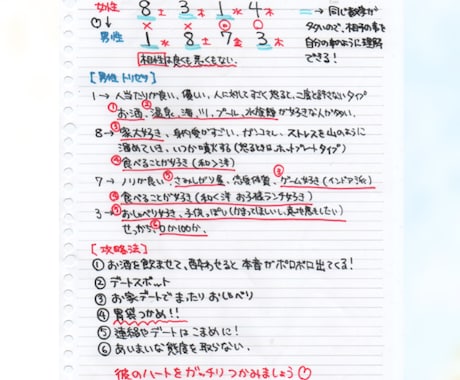 女性 8土 3木 1水 4木 ＝ → 同じ数字が
♡↓ × × ○ ○ 多いので、相手の事を
男性 1水 8土 7金 3木 自分の事のように理解
相性は良くも悪くもない。 できる!
[男性トリセツ]
1→ 人当たりが良い、優しい、人に対してすごく怒ると、二度と許さないタイプ
①お酒、②温泉、海、川、プール、水族館が好きな人が多い。
8→ ③家大好き、身内愛がすごい、ガンコマン、ストレスを山のように
溜めていき、いつか噴火する(怒るときはホットプレートタイプ)
④食べることが好き(和<洋)
7→ ノリが良い、⑤さみしがり屋、恋愛体質、③ゲーム好き(インドア派)
④食べることが好き(和<洋 お子様ランチ好き)
3→ ⑤おしゃべり好き、子供っぽい(かまってほしいし、束縛もしたい)
せっかち、⑥0か100か、
[攻略法]
① お酒を飲ませて、酔わせると本音がポロポロ出てくる!
② デートスポット
③ お家デートでまったりおしゃべり
④ 胃袋つかめ!!
⑤ 連絡やデートはこまめに!
⑥ あいまいな態度を取らない。
彼のハートをガッチリつかみましょう♡